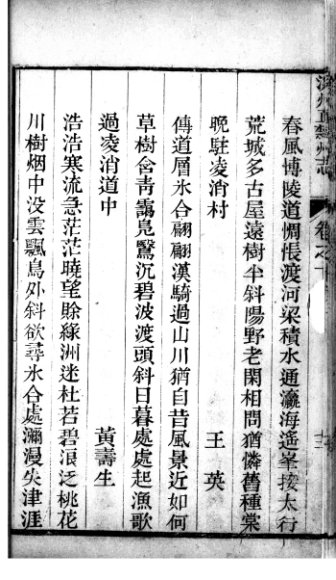 春風博陵道惆悵渡河梁積水通瀛海遙峯接太行
荒城多古屋遠樹半斜陽野老閑相問猶憐舊種棠
晚駐凌消村 王英
傳道層氷合翩翩漢騎過山川猶自昔風景近如何
草樹含青靄鳧鷖沉碧波渡頭斜日暮處處起漁歌
過凌消道中 黃壽生
浩浩寒流急茫茫曉望賒綠洲迷杜若碧浪泛桃花
川樹烟中没雲飄鳥外斜欲尋氷合處瀰漫失津涯